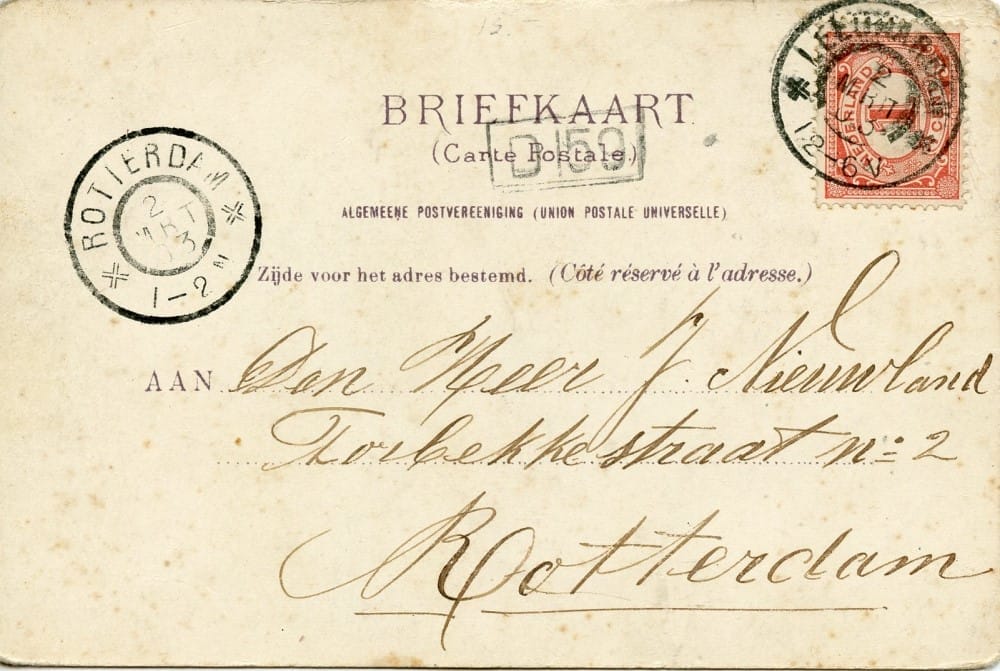 15-
BRIEFKAART
(Carte Postale.)
D 59
ALGEMEENE POSTVEREENIGING (UNION POSTALE UNIVERSELLE)
Zijde voor het adres bestemd. (Côté réservé à l'adresse.)
AAN Den Heer J. Nieuwland
Torbekkestraat no: 2
Rotterdam
ROTTERDAM
2
MRT
03
1-2N
LEEUWARDEN
2
MRT
03
12-6N
NEDERLAND
1
CENT